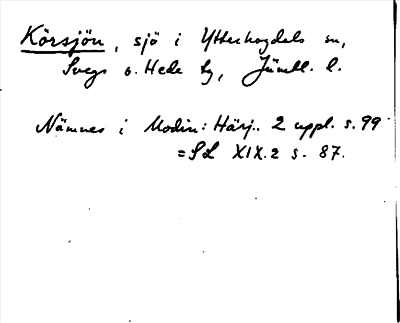 Körsjön, sjö i Ytterhogdals sn,
Svegs o. Hede tg, Jämtl. l.
Nämnes i Modin: Härj.. 2 uppl. s. 99
= SL XIX.2 s. 87.